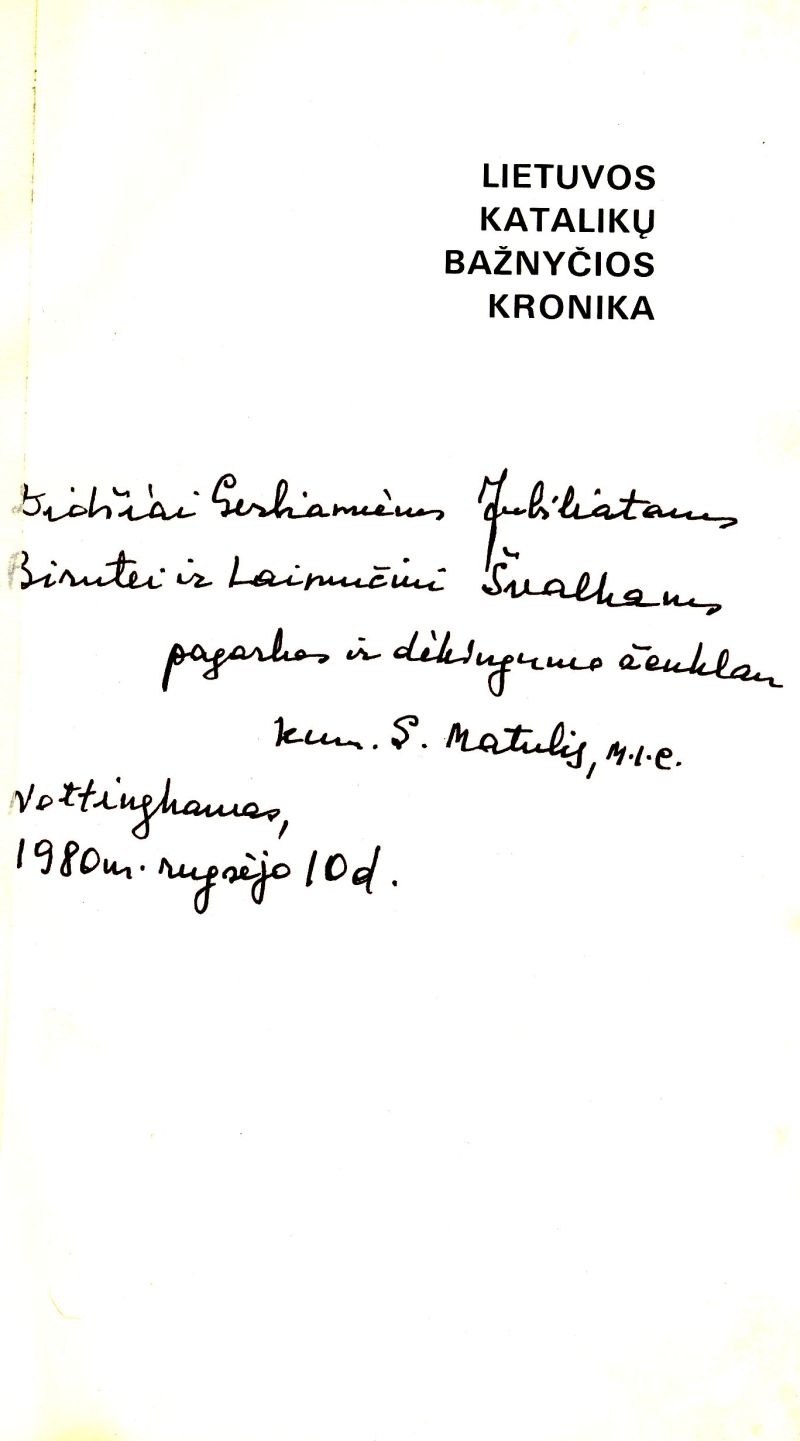 LIETUVOS
KATALIKŲ
BAŽNYČIOS
KRONIKA
Didžiai Gerbiamiems Jubiliatams
Birutei ir Laimučiui Švalkams
pagarbos ir dėkingumo ženklan
kun. S. Matulis, M.I.C.
Nottinghamas,
1980 m. rugsėjo 10 d.